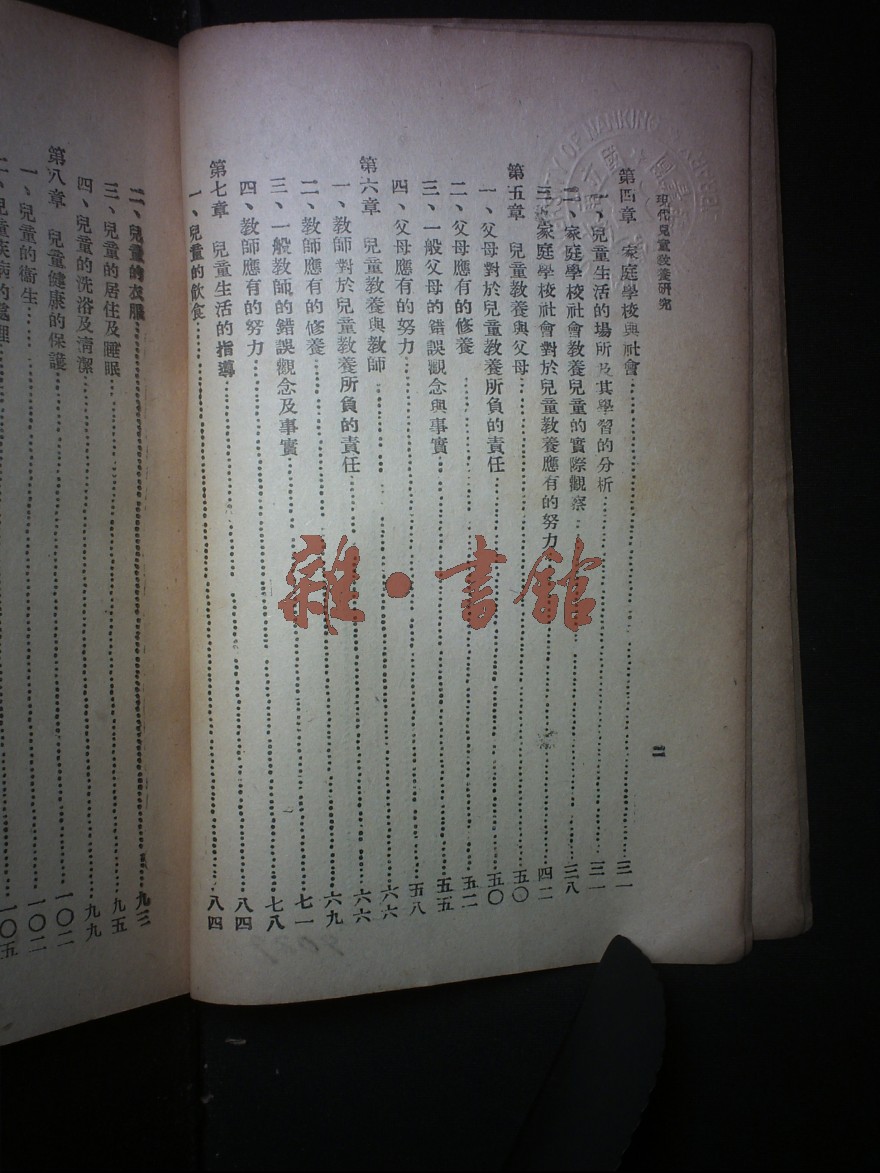 現代兒童教養研究
二
第四章 家庭學校與社會……三一
一、兒童生活的場所及其學習的分析……三一
二、家庭學校社會教養兒童的實際觀察……三八
三、家庭學校社會對於兒童教養應有的努力……四二
第五章 兒童教養與父母……五〇
一、父母對於兒童教養所負的責任……五〇
二、父母應有的修養……五二
三、一般父母的錯誤觀念與事實……五五
四、父母應有的努力……五八
第六章 兒童教養與教師……六六
一、教師對於兒童教養所負的責任……六六
二、教師應有的修養……六九
三、一般教師的錯誤觀念及事實……七一
四、教師應有的努力……七八
第七章 兒童生活的指導……八四
一、兒童的飲食……八四
二、兒童的衣服……九三
三、兒童的居住及睡眠……九五
四、兒童的洗浴及清潔……九九
第八章 兒童健康的保護……一〇二
一、兒童的衞生……一〇二
二、兒童疾病的處理……一〇五
雜·書館
OF NANKING